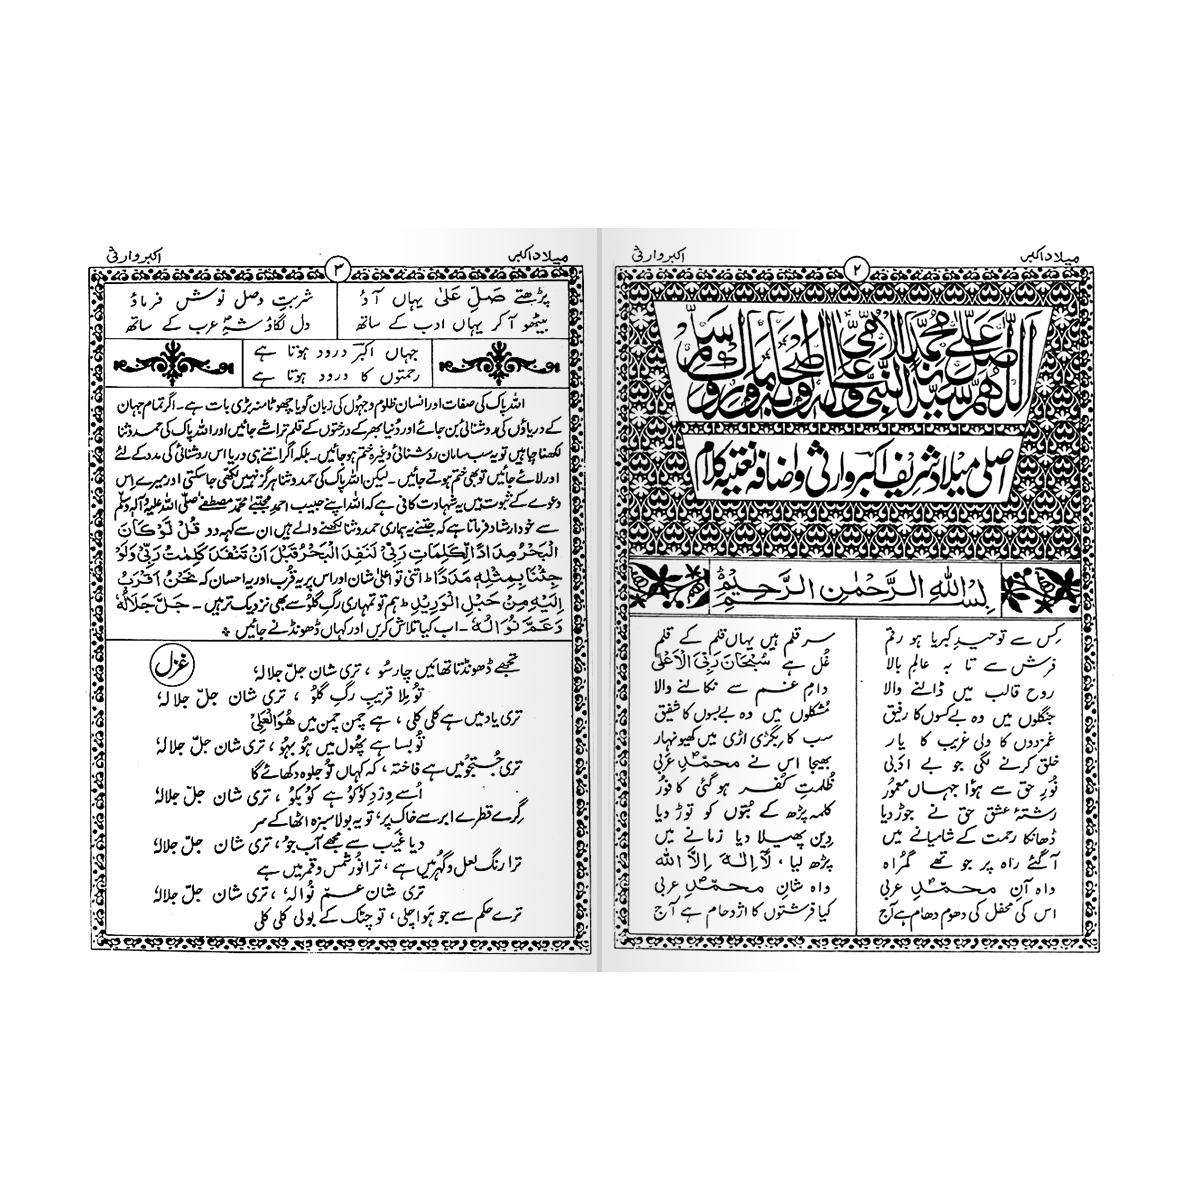 میلاد اکبر
۲
اکبر وارثی
اَللّٰھُمَّ صَلِّ عَلٰی سَیِّدِنَا مُحَمَّدِ النَّبِیِّ الْاُمِّیِّ وَعَلٰی اٰلِہٖ وَاَصْحَابِہٖ وَبَارِکْ وَسَلِّمْ
اصلی میلاد شریف اکبر وارثی واضافہ نعتیہ کلام
بِسْمِ اللّٰہِ الرَّحْمٰنِ الرَّحِیْمِ
کِس سے توحیدِ کبریا ہو رقم سر قلم ہیں یہاں قلم کے قلم
فرش سے تا بہ عالمِ بالا غُل ہے سُبْحَانَ رَبِّیَ الْاَعْلٰی
روح قالب میں ڈالنے والا دامِ غم سے نکالنے والا
جنگلوں میں وہ بےکسوں کا رفیق مُشکلوں میں وہ بےبسوں کا شفیق
غمزدوں کا ولی غریب کا یار سب کا بِگڑی اڑی میں کھیونہار
خلق کرنے لگی جو بے ادبی بھیجا اس نے محمّدِؐ عربی
نُورِ حق سے ہوا جہاں معمُور ظُلمتِ کفر ہو گئی کافور
رشتۂ عشق حق نے جوڑ دیا کلمہ پڑھ کے بُتوں کو توڑ دیا
ڈھانکا رحمت کے شامیانے میں دِین پھیلا دیا زمانے میں
آگئے راہ پر جو تھے گمراہ پڑھ لیا، لَآ اِلٰہَ اِلَّا اللہ
واہ آنِ محمّدِؐ عربی واہ شانِ محمّدِؐ عربی
اس کی محفل کی دھوم دھام ہے آج کیا فرشتوں کا اژدحام ہے آج
میلاد اکبر
۳
اکبر وارثی
پڑھتے صَلِّ عَلٰی یہاں آؤ شربتِ وصل نوش فرماؤ
بیٹھو آکر یہاں ادب کے ساتھ دل لگاؤ شہِؐ عرب کے ساتھ
جہاں اکبرؔ درود ہوتا ہے
رحمتوں کا ورود ہوتا ہے
اللہ پاک کی صفات اور انسان ظلوم وجہُول کی زبان گویا چھوٹا منہ بڑی بات ہے۔ اگر تمام جہان
کے دریاؤں کی روشنائی بن جائے اور دُنیا بھر کے درختوں کے قلم تراشے جائیں اور اللہ پاک کی حمد وثنا
لکھنا چاہیں تو یہ سب سامان روشنائی وغیرہ ختم ہوجائیں۔ بلکہ اگر اتنے ہی دریا اس روشنائی کی مدد کے لئے
اور لائے جائیں تو بھی ختم ہوتے جائیں۔ لیکن اللہ پاک کی حمد وثنا ہرگز نہیں لکھی جاسکتی اور میرے اِس
دعوے کے ثبوت میں یہ شہادت کافی ہے کہ اللہ اپنے حبیب احمد مجتبیٰ محمّد مصطفےٰ صلّی اللہ علیہ وآلہٖ وسلّم
سے خود ارشاد فرماتا ہے کہ جتنے یہ ہماری حمد وثنا لکھنے والے ہیں ان سے کہہ دو قُلْ لَّوْ کَانَ
الْبَحْرُ مِدَادًا لِّکَلِمَاتِ رَبِّیْ لَنَفِدَ الْبَحْرُ قَبْلَ اَنْ تَنْفَدَ کَلِمٰتُ رَبِّیْ وَلَوْ
جِئْنَا بِمِثْلِہٖ مَدَدًا ط اتنی تو اعلیٰ شان اور اس پر یہ قُرب اور یہ احسان کہ نَحْنُ اَقْرَبُ
اِلَیْہِ مِنْ حَبْلِ الْوَرِیْدِ ط ہم تو تمہاری رگِ گلُو سے بھی نزدیک تر ہیں۔ جَلَّ جَلَالُہٗ
وَعَمَّ نَوَالُہٗ۔ اب کیا تلاش کریں اور کہاں ڈھونڈنے جائیں ٭
غزل
تُجھے ڈھونڈتا تھا میں چار سُو ، تری شان جلّ جلالہٗ
تُو مِلا قریبِ رگِ گلُو ، تری شان جلّ جلالہٗ
تری یاد میں ہے کلی کلی ، ہے چمن چمن میں ھُوَ الْعَلِیْ
تُو بسا ہے پھُول میں ہُو بہُو ، تری شان جلّ جلالہٗ
تری جُستجُو میں ہے فاختہ ، کہ کہاں تُو جلوہ دکھائے گا
اُسے وِردِ کُوکُو ہے کُو بکُو ، تری شان جلّ جلالہٗ
گِرے قطرے ابر سے خاک پر، تو یہ بولا سبزہ اٹھا کے سر
دیا غیب سے مجھے آب جُو ، تری شان جلّ جلالہٗ
ترا رنگ لعل وگہر میں ہے ، ترا نور شمس وقمر میں ہے
تری شان عمّ نوالہٗ ، تری شان جلّ جلالہٗ
ترے حکم سے جو ہَوا چلی ، تو چٹک کے بولی کلی کلی